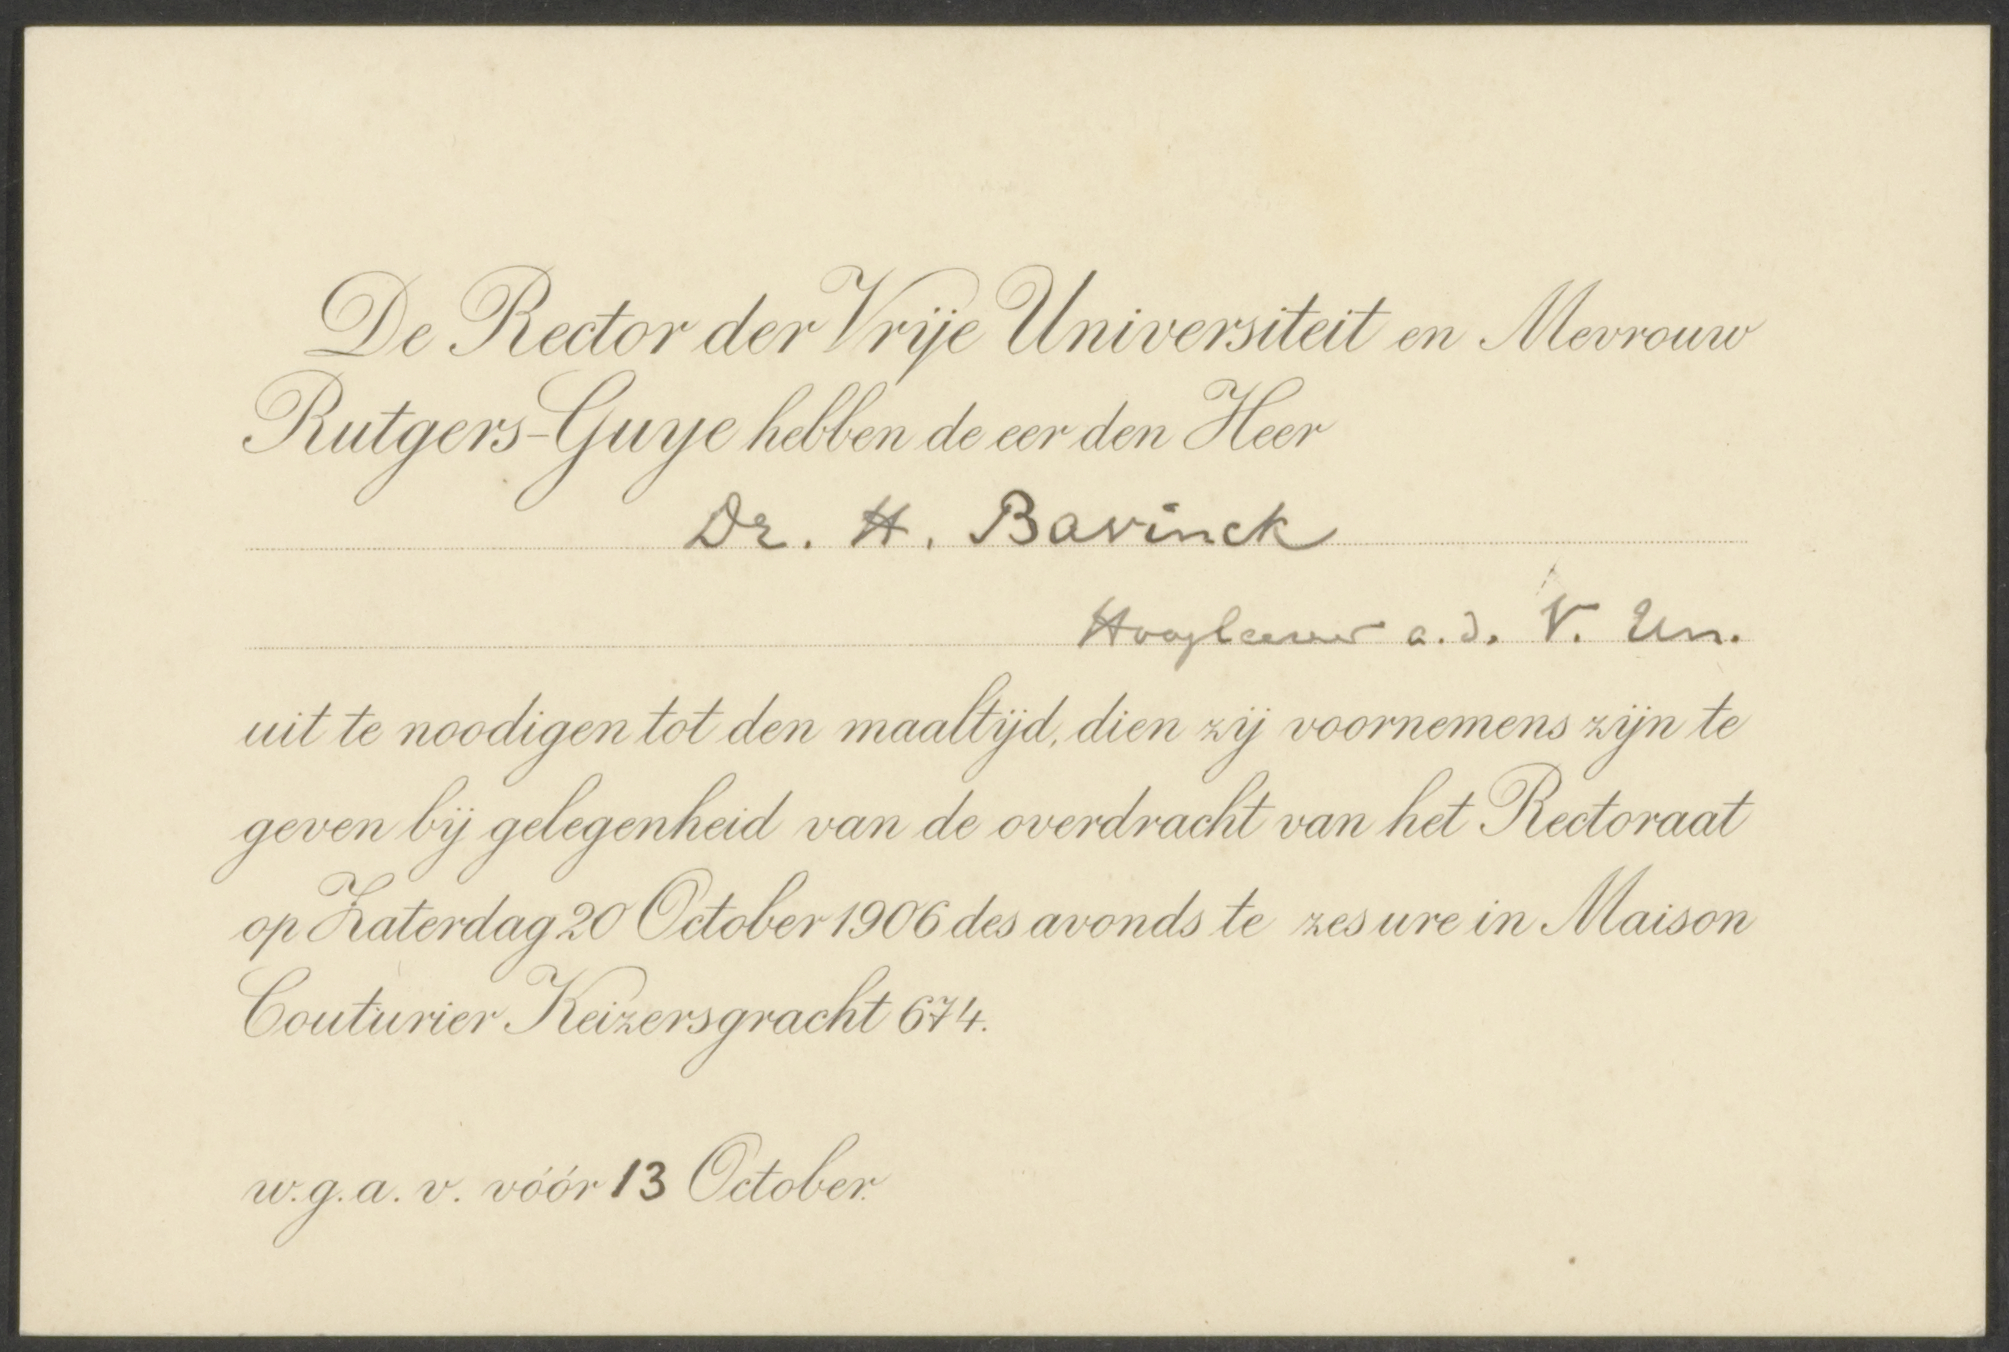 De Rector der Vrije Universiteit en Mevrouw
Rutgers-Guye hebben de eer den Heer
Dr. H. Bavinck
Hoogleeraar a.d. V. Un.
uit te noodigen tot den maaltijd, dien zij voornemens zijn te
geven bij gelegenheid van de overdracht van het Rectoraat
op Zaterdag 20 October 1906 des avonds te zes ure in Maison
Couturier Keizersgracht 674.
w.g.a.v. vóór 13 October.